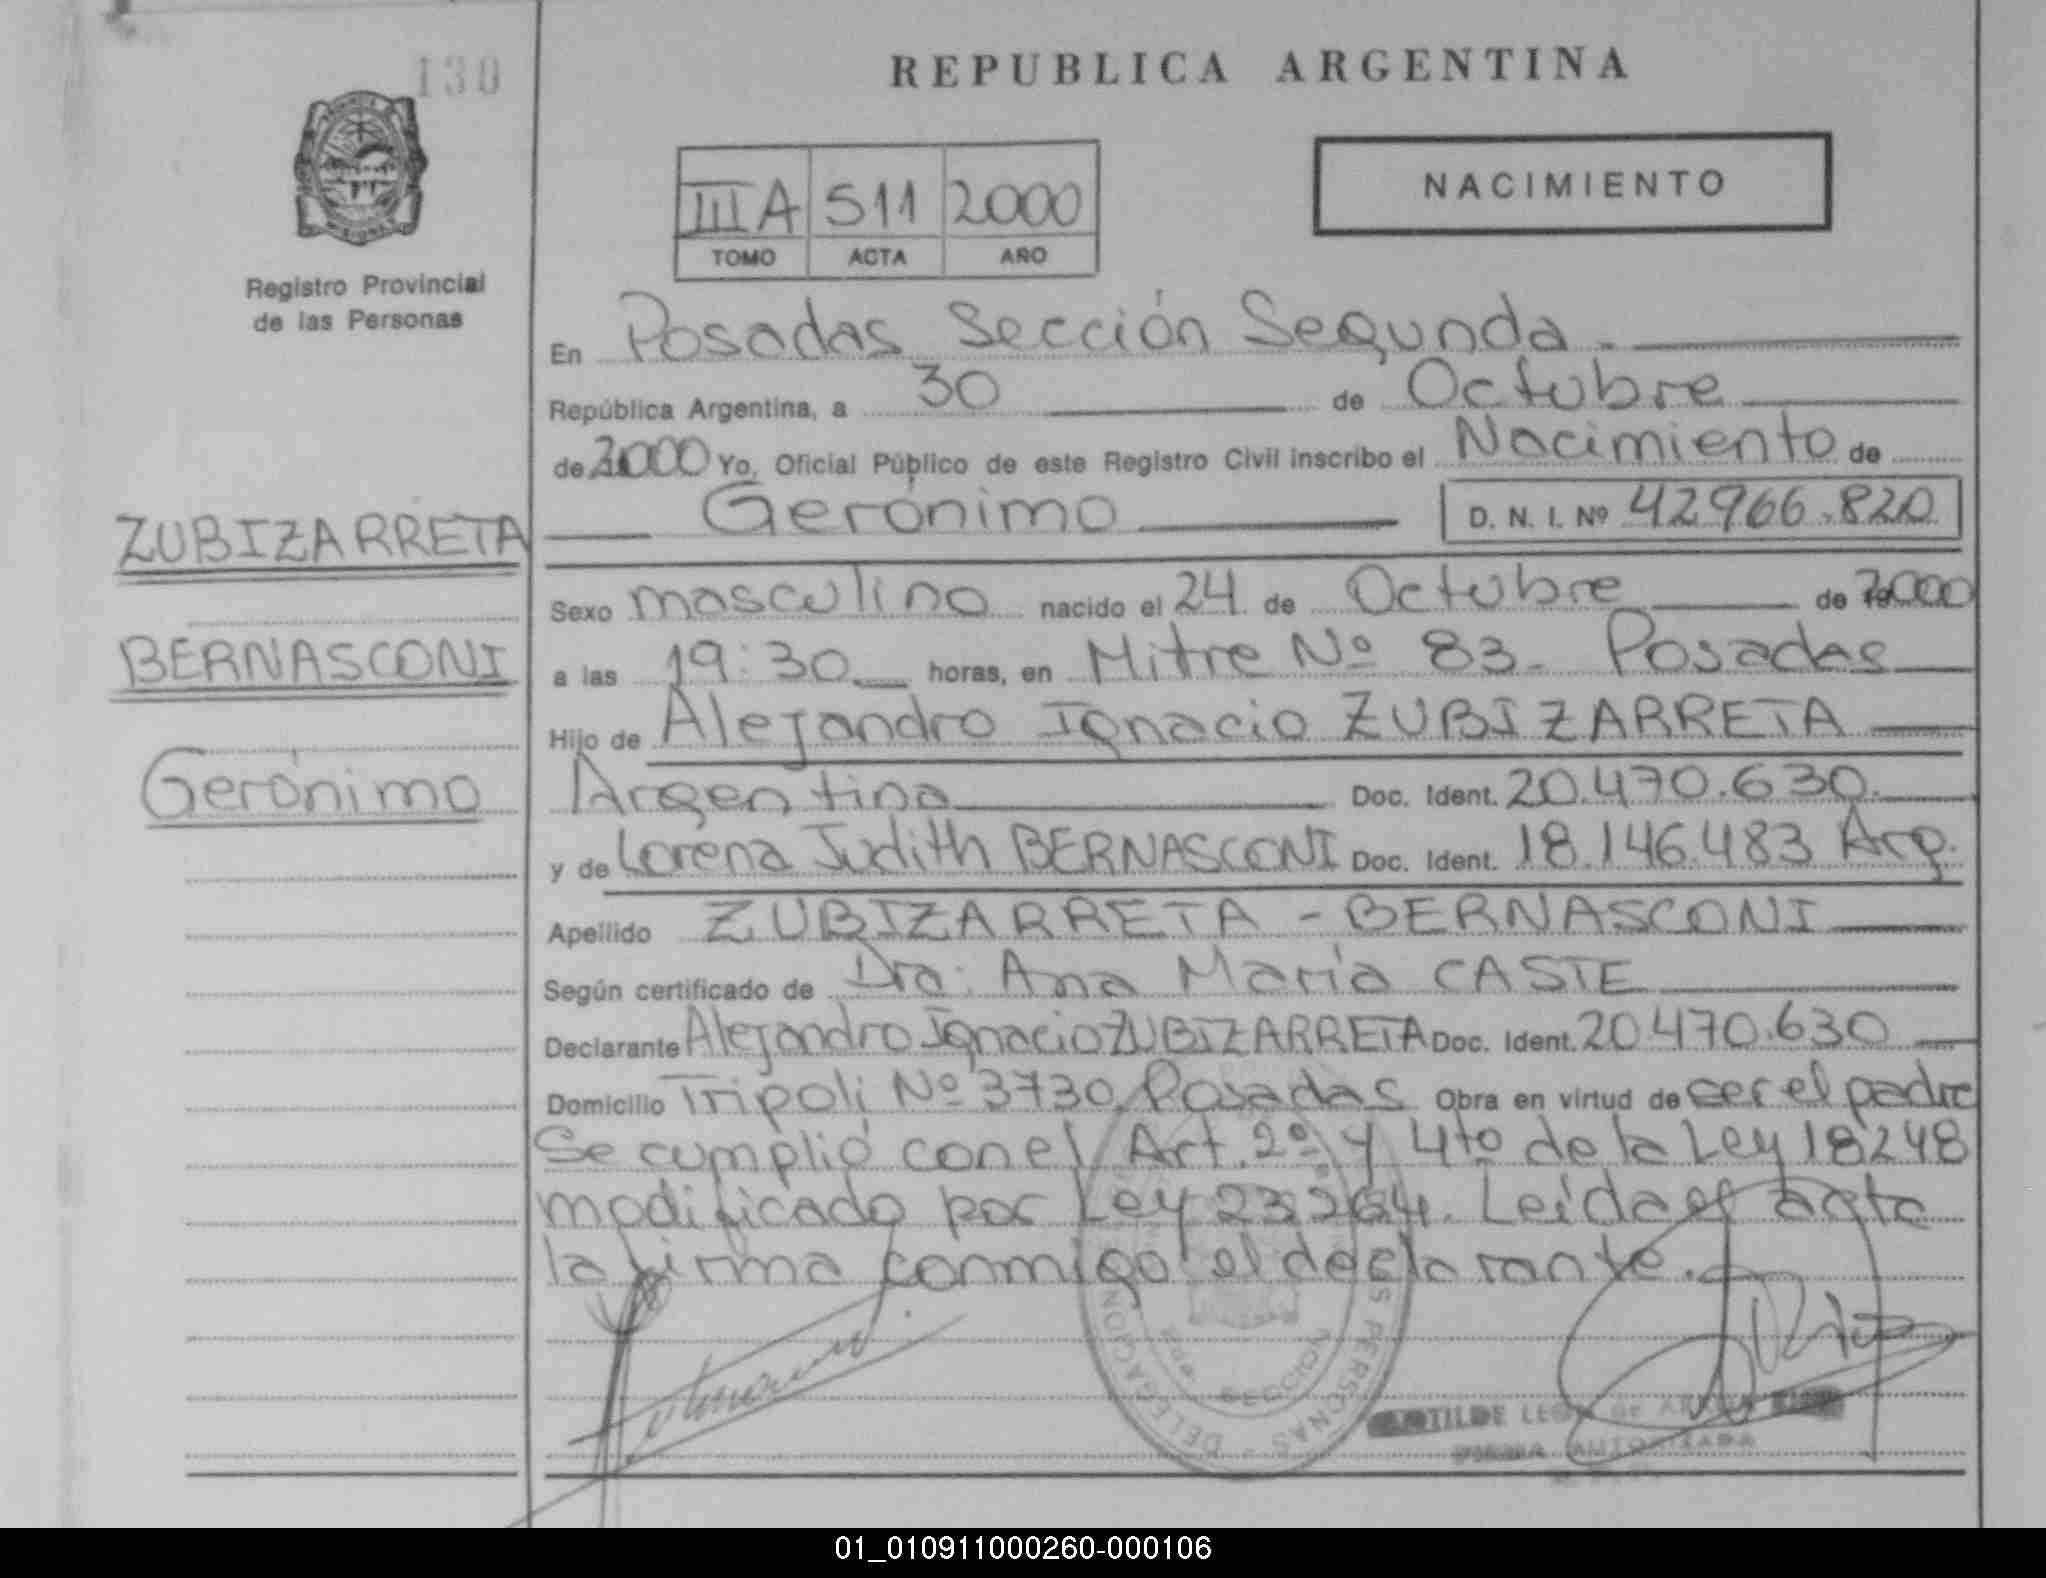 130
REPUBLICA ARGENTINA
NACIMIENTO
III A 511 2000
TOMO ACTA AÑO
Registro Provincial
de las Personas
En Posadas Sección Segunda.
República Argentina, a 30 de Octubre
de 2000 Yo, Oficial Público de este Registro Civil inscribo el Nacimiento de
Gerónimo D. N. I. Nº 42966.820
ZUBIZARRETA
BERNASCONI
Gerónimo
Sexo masculino nacido el 24 de Octubre de 2000
a las 19:30 horas, en Mitre Nº 83- Posadas
Hijo de Alejandro Ignacio ZUBIZARRETA
Argentino Doc. Ident. 20.470.630.
y de Lorena Judith BERNASCONI Doc. Ident. 18.146.483 Arg.
Apellido ZUBIZARRETA - BERNASCONI
Según certificado de Dra. Ana María CASTE
Declarante Alejandro Ignacio ZUBIZARRETA Doc. Ident. 20.470.630
Domicilio Tripoli Nº 3730, Posadas Obra en virtud de ser el padre
Se cumplió con el Art. 2º y 4to de la Ley 18248
modificado por Ley 23264. Leída el acta
la firma conmigo el declarante.
DELEGACION PERSONAS
SECCION
AUTORIZADA
01_010911000260-000106